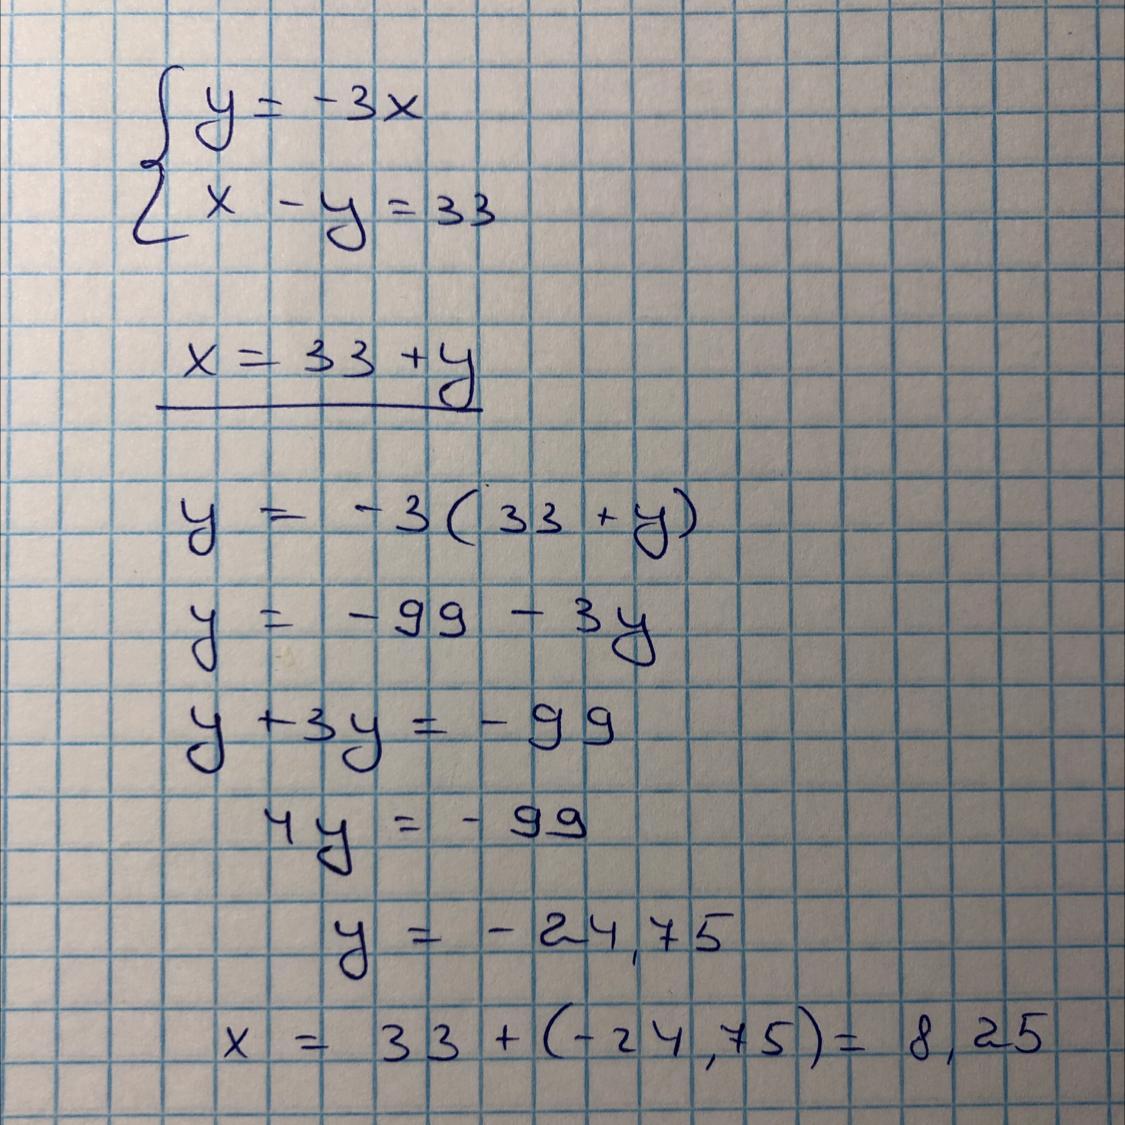 { y = -3x
x - y = 33
x = 33 + y
y = -3(33 + y)
y = -99 - 3y
y + 3y = -99
4y = -99
y = -24,75
x = 33 + (-24,75) = 8,25